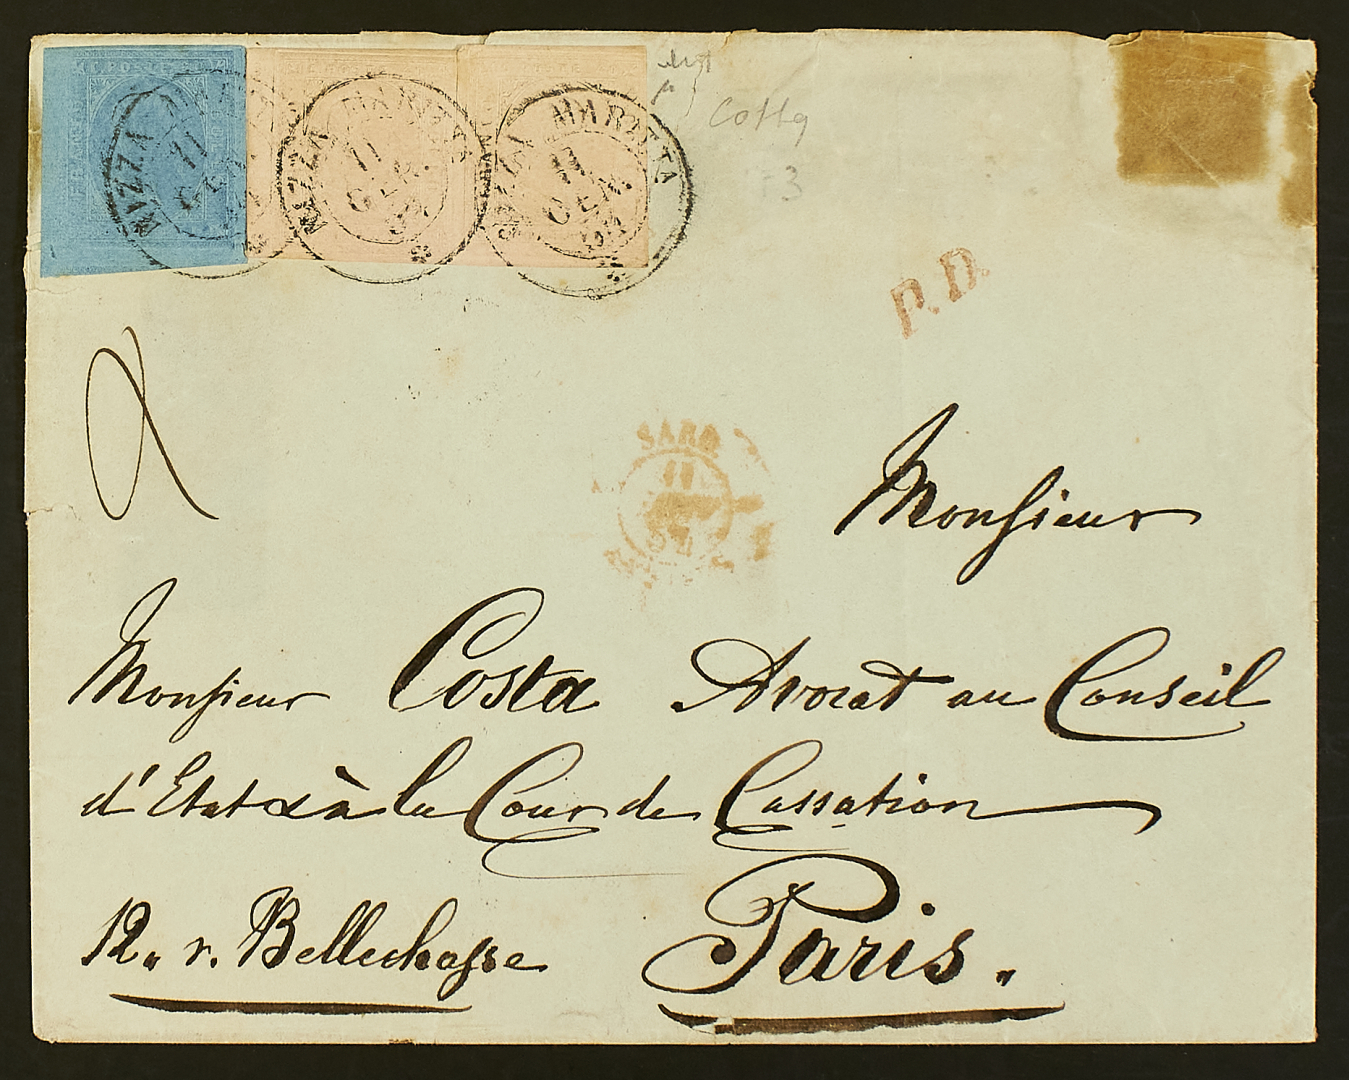 NIZZA MARITTA 11 GEN.
NIZZA MARITTA 11 GEN. 54
NIZZA MARITTA 11 GEN. 54
Costa
P.D.
2
SARD
11
Monsieur
Monsieur Costa Avocat au Conseil
d'Etat & à la Cour de Cassation
12. r. Bellechasse Paris.